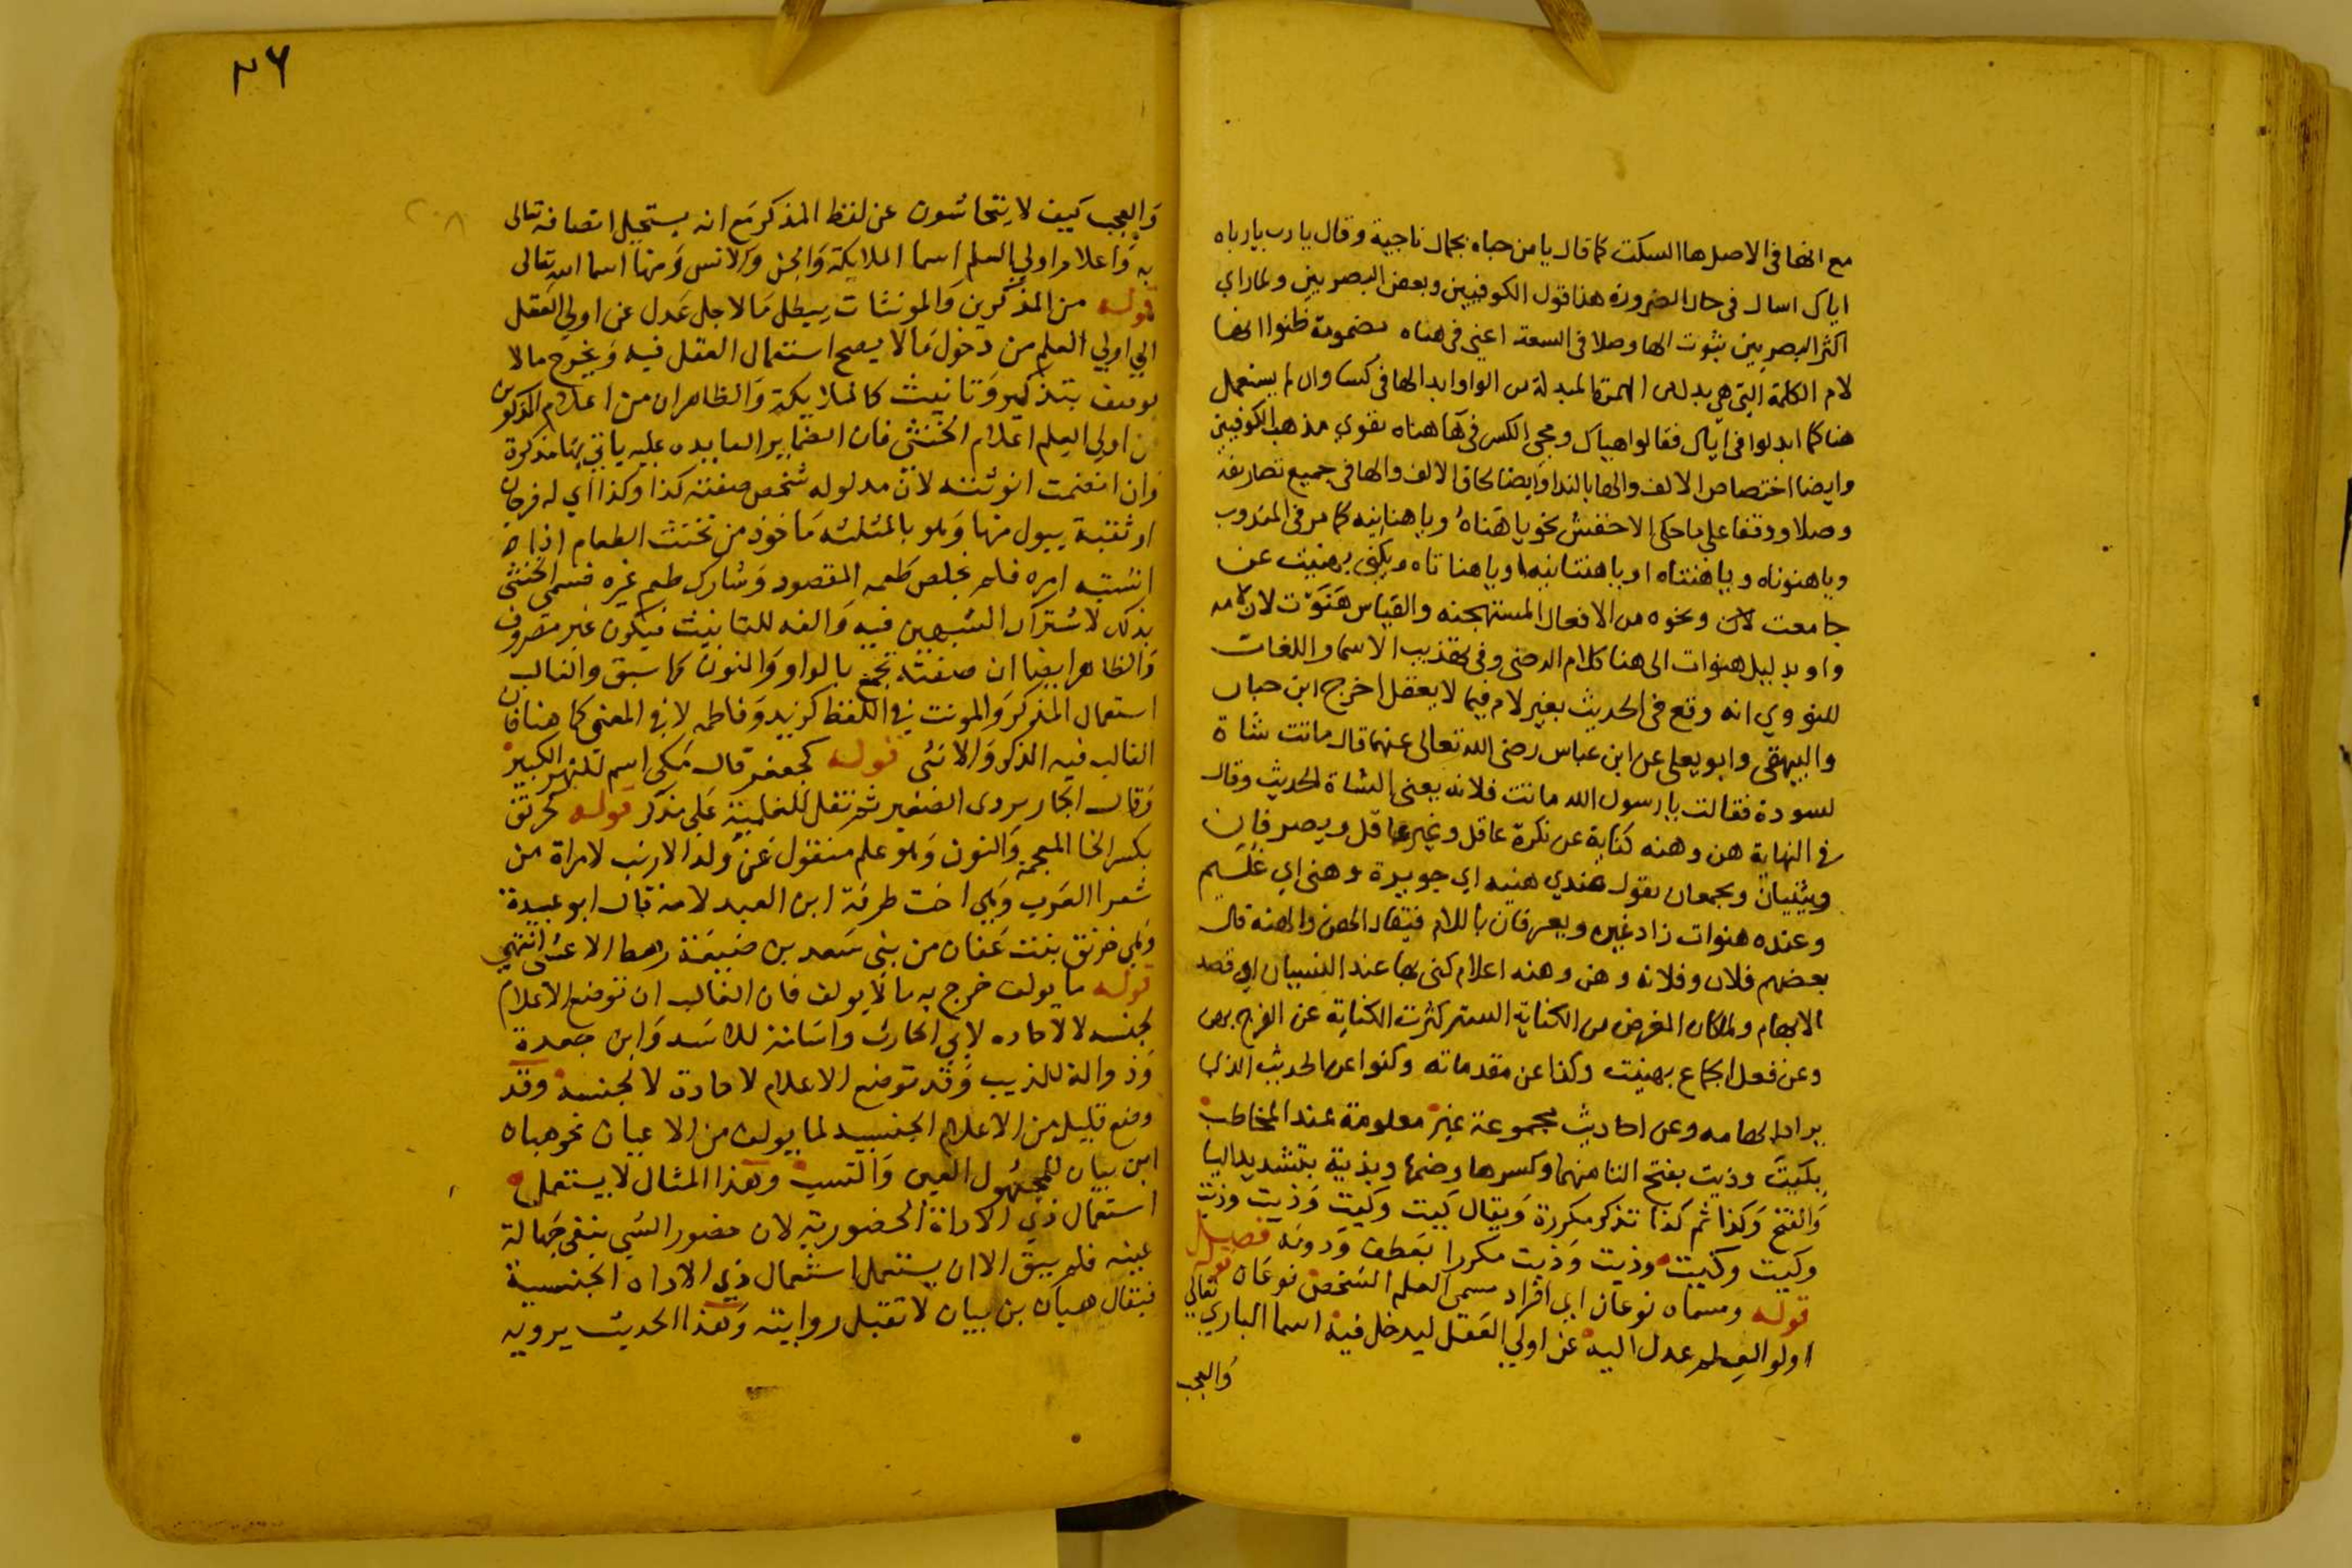 مع انها فى الاصل ها السكت كما قال يا من حباه بجمال ناجية وقال يا رب يا رباه
اياك اسال فى حال الضرورة هذا قول الكوفيين وبعض البصريين ولما راي
اكثر البصريين ثبوت الها وصلا فى السعة اعنى فى هناه مضمومة ظنوا انها
لام الكلمة التى هى بدل من الهمزة المبدلة من الواو ابدالها فى كسا وان لم يستعمل
هنا كما ابدلوا فى اياك فقالوا هياك ومجى الكسر فى ها هناه يقوي مذهب الكوفيين
وايضا اختصاص الالف والها بالندا وايضا لحاق الالف والها فى جميع تصاريفه
وصلا ووقفا على ما حكى الاخفش نحو يا هناه ويا هنانيه كما مر فى المندوب
ويا هنوناه ويا هنتاه او يا هنتانيه ويا هناتاه ويكنى بهنيت عن
جامعت ونحوه من الافعال المستهجنه والقياس هنوت لان لامه
واو بدليل هنوات الى هنا كلام الرضى وفى تهذيب الاسما واللغات
للنووي انه وقع فى الحديث بغير لام فيما لا يعقل اخرج ابن حبان
والبيهقى وابو يعلى عن ابن عباس رضى الله تعالى عنهما قال ماتت شاة
لسودة فقالت يا رسول الله ماتت فلانه يعنى الشاة الحديث وقال
فى النهاية هن وهنه كناية عن نكرة عاقل وغير عاقل ويصرفان
ويثنيان ويجمعان يقول عندي هنيه اي جويرة وهنى اي غليم
وعنده هنوات زاد غيره ويعرفان باللام فيقال الهن والهنة قال
بعضهم فلان وفلانه وهن وهنه اعلام كنى بها عند النسيان او قصد
الابهام ولما كان الغرض من الكناية الستر كثرت الكناية عن الفرج بهن
وعن فعل الجماع بهنيت وكذا عن مقدماته وكنوا عن الحديث الذى
يراد ابهامه وعن احاديث مجموعة غير معلومة عند المخاطب
بكيت وذيت بفتح التا منهما وكسرها وضمها وبذية بتشديد اليا
والفتح وكذا ثم كذا تذكر مكررة ويقال كيت وكيت وذيت وذيت
وكيت وكيت وذيت وذيت مكررا بعطف ودونه فصل
قوله ومسماه نوعان اي افراد مسمى العلم الشخص نوعان قوله
اولو العلم عدل اليه عن اولي العقل ليدخل فيه اسما الباري تعالى
والعجب
٢٦
والعجب كيف لا يتحاشون عن لفظ المذكر مع انه يستحيل اتصافه تعالى
به واعلام اولي العلم اسما الملايكة والجن والانس ومنها اسما الله تعالى
قوله من المذكرين والمونثات يبطل ما لاجل عدل عن اولي العقل
الي اولي العلم من دخول ما لا يصح استعمال العقل فيه ويخرج ما لا
يوصف بتذكير وتانيث كالملايكة والظاهر ان من اعلام المذكرين
من اولي العلم اعلام الخنثى فان الضماير العايده عليه ياتي بها مذكرة
وان اتضحت انوثته لان مدلوله شخص صفته كذا وكذا اي له فرجان
او ثقبة يبول منها وهو بالمثلثه ماخوذ من تخنث الطعام اذا
اشتبه امره فلم يخلص طعمه المقصود وشارك طعم غيره فسمي الخنثى
بذلك لاشتراك الشبهين فيه والفه للتانيث فيكون غير مصروف
والظاهر ايضا ان صفته تجمع بالواو والنون كما سبق والغالب
استعمال المذكر والمونث في اللفظ كزيد وفاطمه لا في المعنى كما هنا فان
الغالب فيه الذكر والانثى قوله كجعفر قال مكى اسم للنهر الكبير
وقال الجاربردى الصغير ثم نقل للعلمية على مذكر قوله كخرنق
بكسر الخا المعجمة والنون وهو علم منقول عن ولد الارنب لامراة من
شعرا العرب وهي اخت طرفة ابن العبد لامه قال ابو عبيدة
وهي خرنق بنت عفان من بني سعد بن ضبيعة رهط الاعشى انتهي
قوله ما يولف خرج به ما لا يولف فان الغالب ان توضع الاعلام
لجنسه لا لاحاده لابي الحارث واسامة للاسد وابن جعدة
وذوالة للذيب وقد توضع الاعلام لاحاده لا لجنسه وقد
وضع قليل من الاعلام الجنسيه لما يولف من الاعيان نحو هيان
ابن بيان للمجهول العين والنسب وهذا المثال لا يستعمل
استعمال ذي الاداة الحضورية لان حضور الشي ينفي جهالة
عينه فلم يبق الا ان يستعمل استعمال ذي الاداه الجنسية
فيقال هيان بن بيان لا تقبل روايته وهذا الحديث يرويه